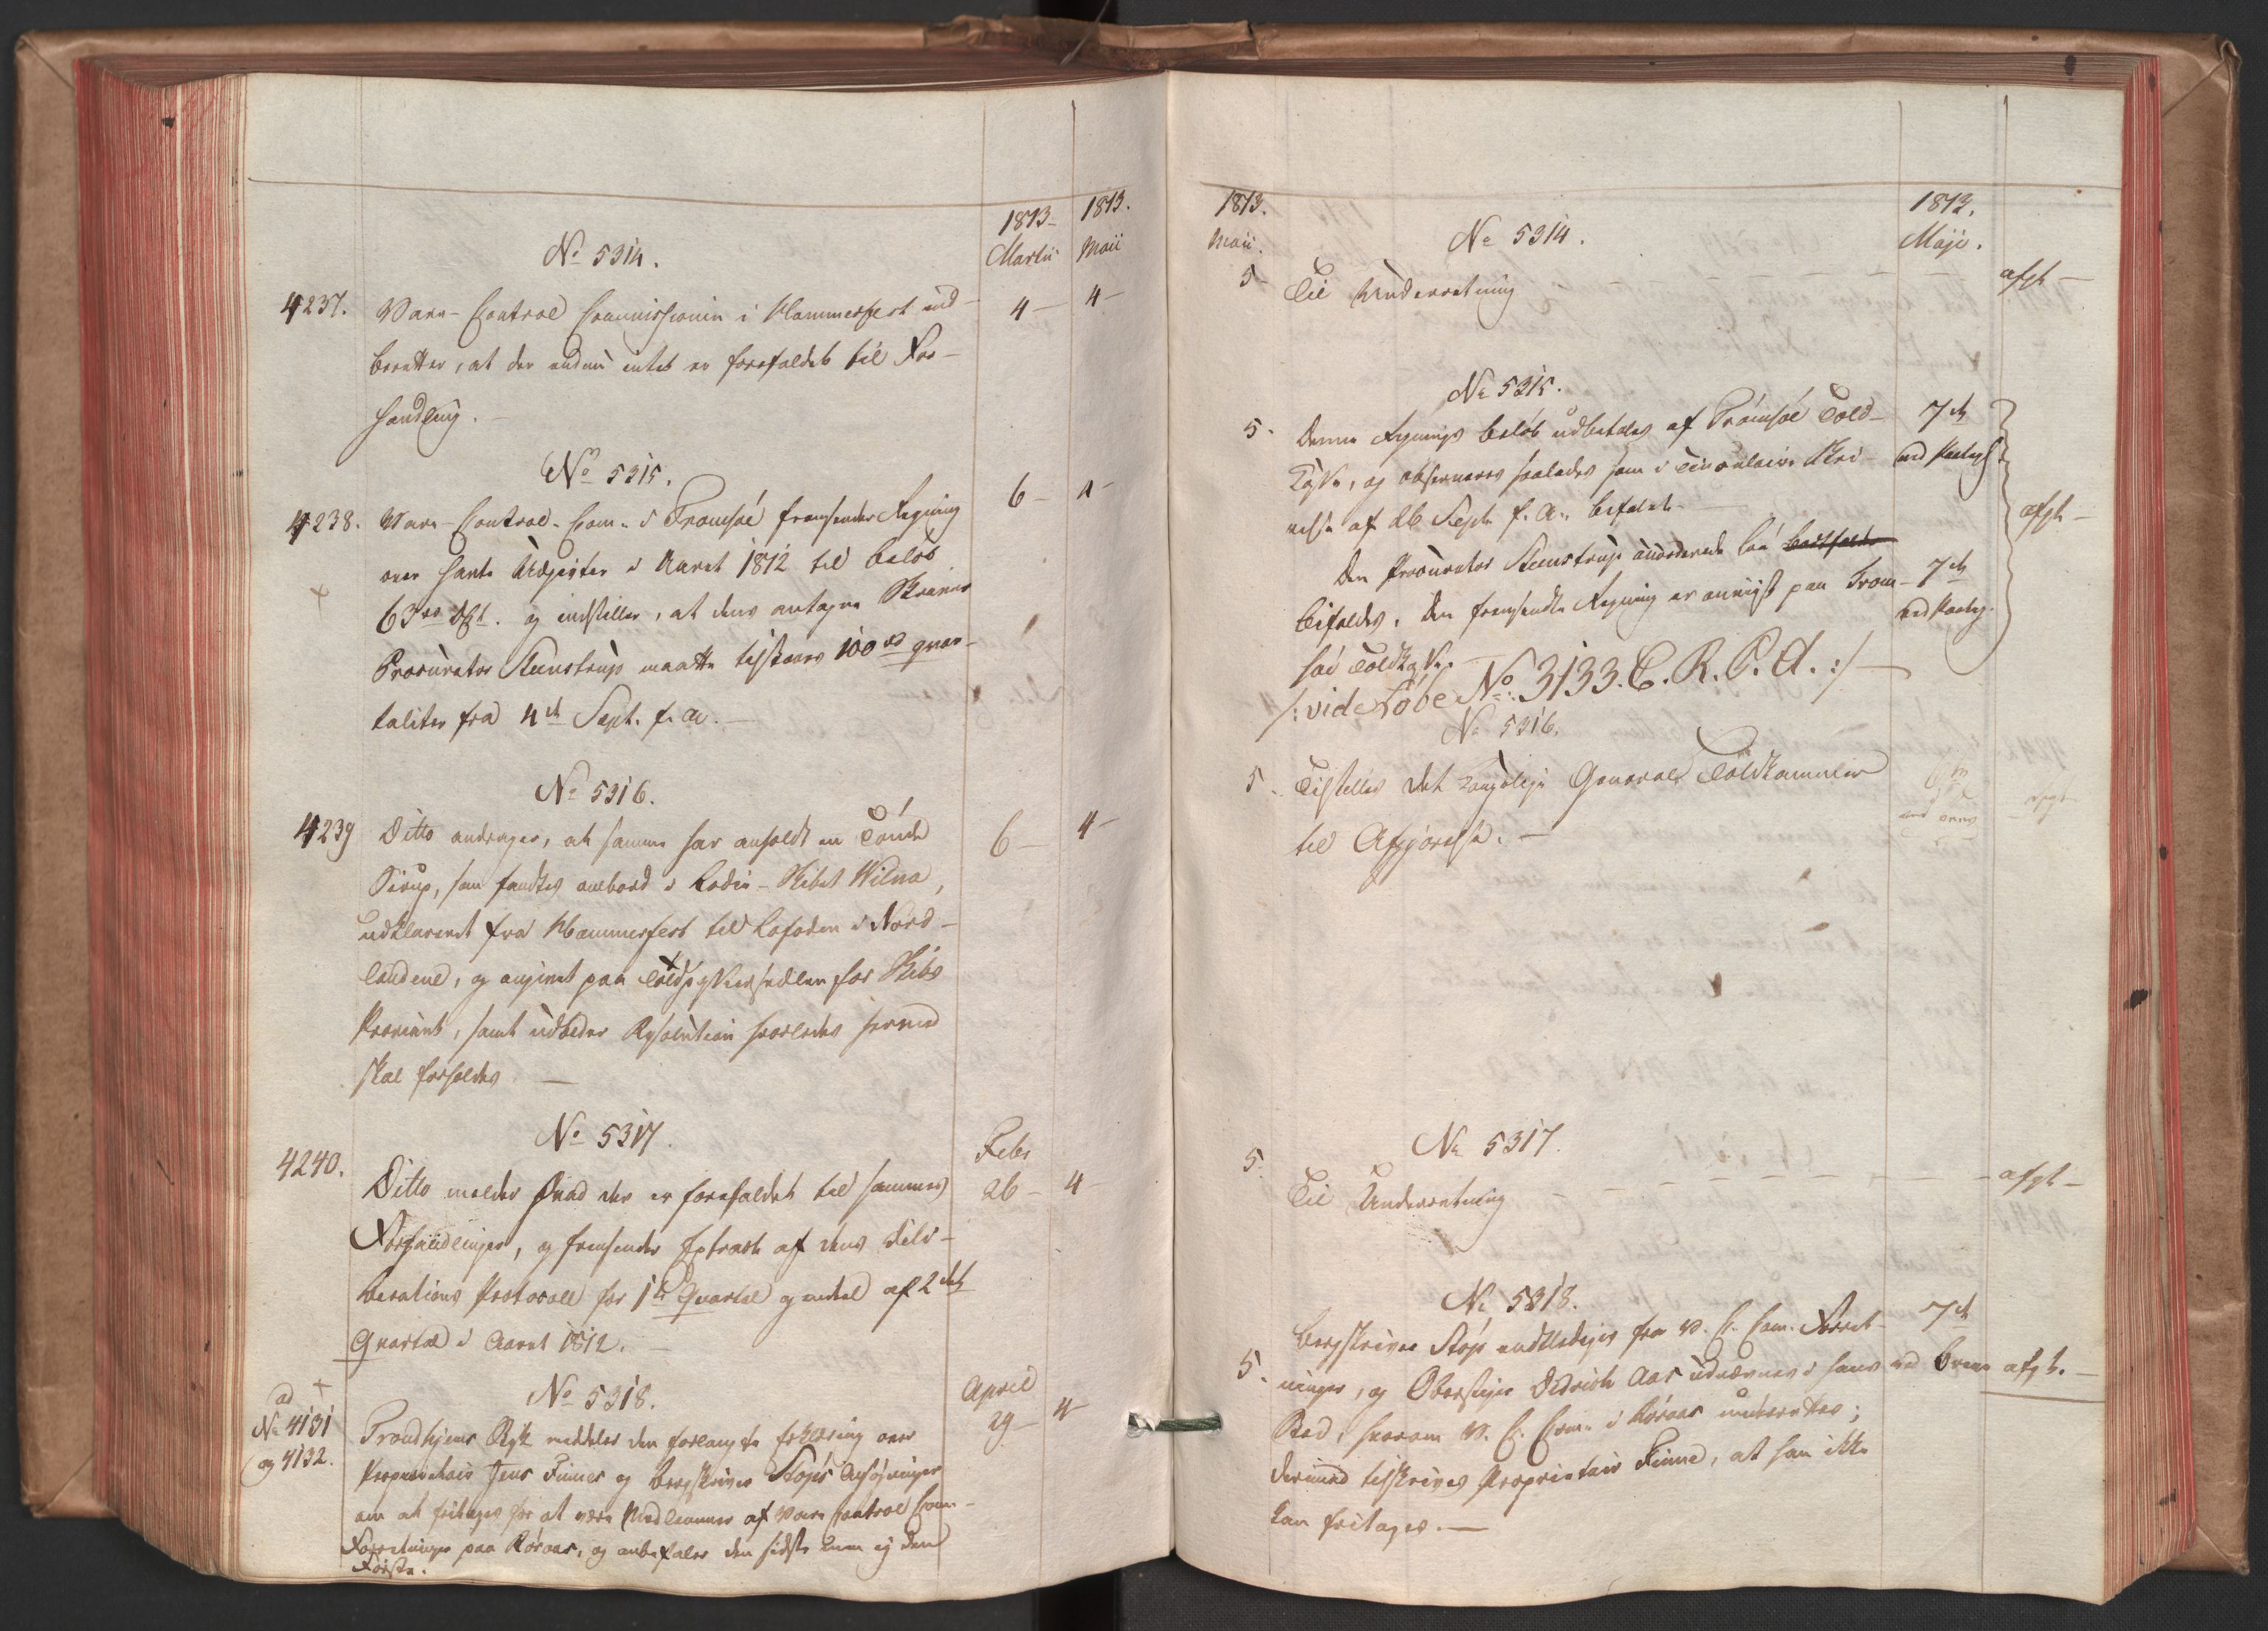 1813. 1813.
Martii Maii
No 5314.
4237. Vare-Control Commissionen i Hammerfest ind-
beretter, at der endnu intet er forefaldet til For-
handling.
4 - 4 -
No 5315.
4238. Vare-Control-Com. i Tromsöe fremsender Regning
over hafte Udgivter i Aaret 1812 til Beløb
63 rd og indstiller, at dens antagne Skriver
Procurator Steenstrup maatte tilstaaes 100 rd qvar-
taliter fra 4de Sept. f. A.
6 - 4 -
No 5316.
4239 Ditto andrager, at samme har anholdt en Tönde
Sirup, som fandtes ombord i Skibet Wilna,
udklareret fra Hammerfest til Lofoden i Nord-
landene, og angivet paa for Skibs
Proviant, samt udbeder Resolution hvorledes hermed
skal forholdes
6 - 4 -
No 5317.
4240. Ditto melder hvad der er forefaldet til sammes
Forhandlinger, og fremsender Extract af dens Deli-
berations Protocoll for 1te Qvartal og endeel af 2det
Qvartal i Aaret 1812.
Febr
26 - 4 -
ad
No 4131
og 4132.
No 5318.
Trondhjems meddeler den forlangte Erklæring over
Proprietair Jens Finnes og Bergskriver Støps Ansøgninger
om at fritages for at være Medlemmer af Vare Control Com-
Forretninger paa Röraas, og anbefaler den sidste men ej den
Første.
April
29 - 4
1813. 1813.
Maii. Maji.
No 5314.
5 - Til Underretning afgt -
No 5315.
5 - Denne Regnings Beløb udbetales af Tromsøe Told-
Casse, og observeres saaledes som i Circulaire Skri-
velse af 26 Septr f. A. befalet.
Den Procurator Steenstrup
bifaldes. Den fremsendte Regning er anviist paa Trom-
søe Toldkasse.
/: vide Løbe No: 3133. C. R. P. A. :/
7de
7de
afgt -
No 5316.
5 - Tilstilles det kongelige General Toldkammer
til Afgjørelse.
No 5317.
5. Til Underretning - afgt -
No 5318.
5. Bergskriver Støp entledigес fra V. C. Com. Forret-
ninger, og Oberstiger Didrich Aas udnævnes i hans
Sted, hvorom V. C. Com. i Röraas underrettes;
derimod tilskrives Proprietair Finne, at han ikke
kan fritages.
7de
ved Brev afgt. -